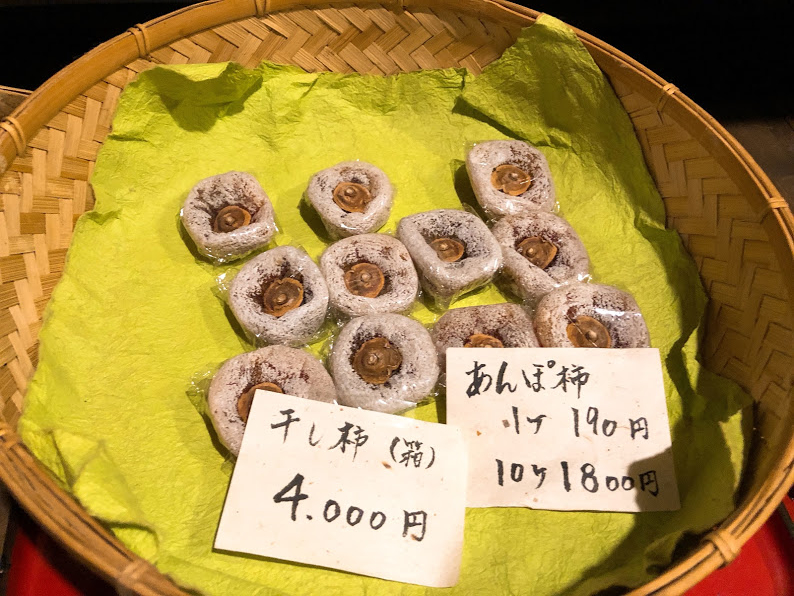 干し柿（箱）
4.000円
あんぽ柿
1ケ 190円
10ケ 1800円